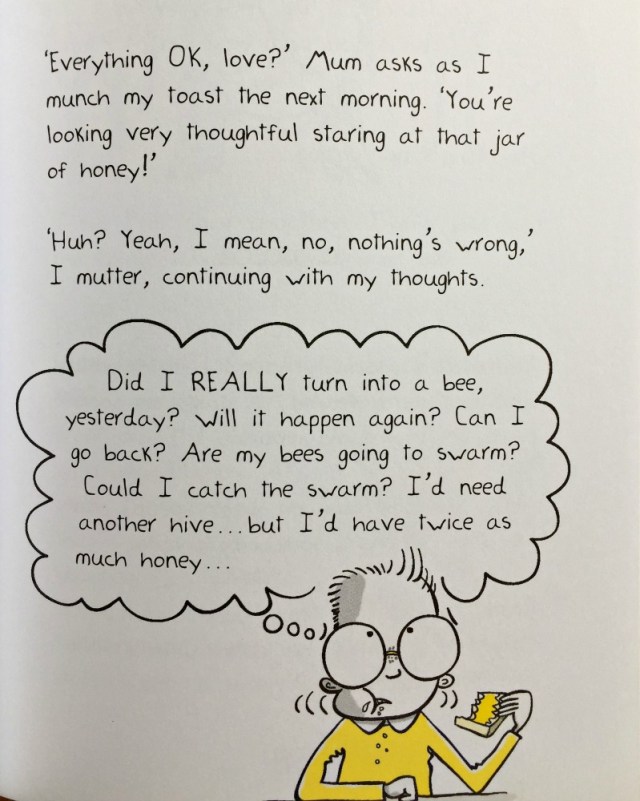 ‘Everything OK, love?’ Mum asks as I
munch my toast the next morning. ‘You’re
looking very thoughtful staring at that jar
of honey!’
‘Huh? Yeah, I mean, no, nothing’s wrong,’
I mutter, continuing with my thoughts.
Did I REALLY turn into a bee,
yesterday? Will it happen again? Can I
go back? Are my bees going to swarm?
Could I catch the swarm? I’d need
another hive...but I’d have twice as
much honey...